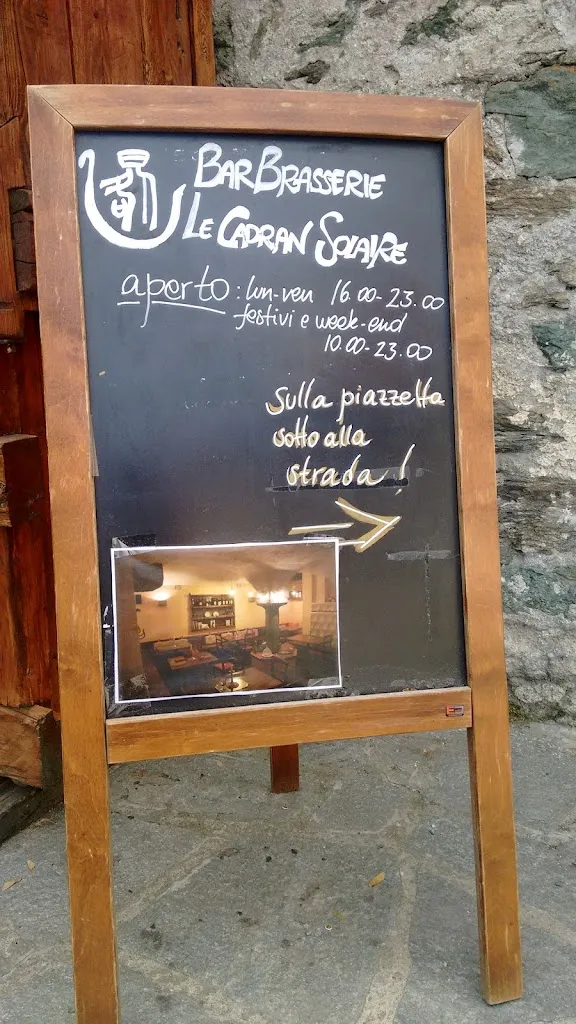 BAR BRASSERIE
LE CADRAN SOLAIRE
aperto: lun-ven 16.00-23.00
festivi e week-end
10.00-23.00
sulla piazzetta
sotto alla
strada!